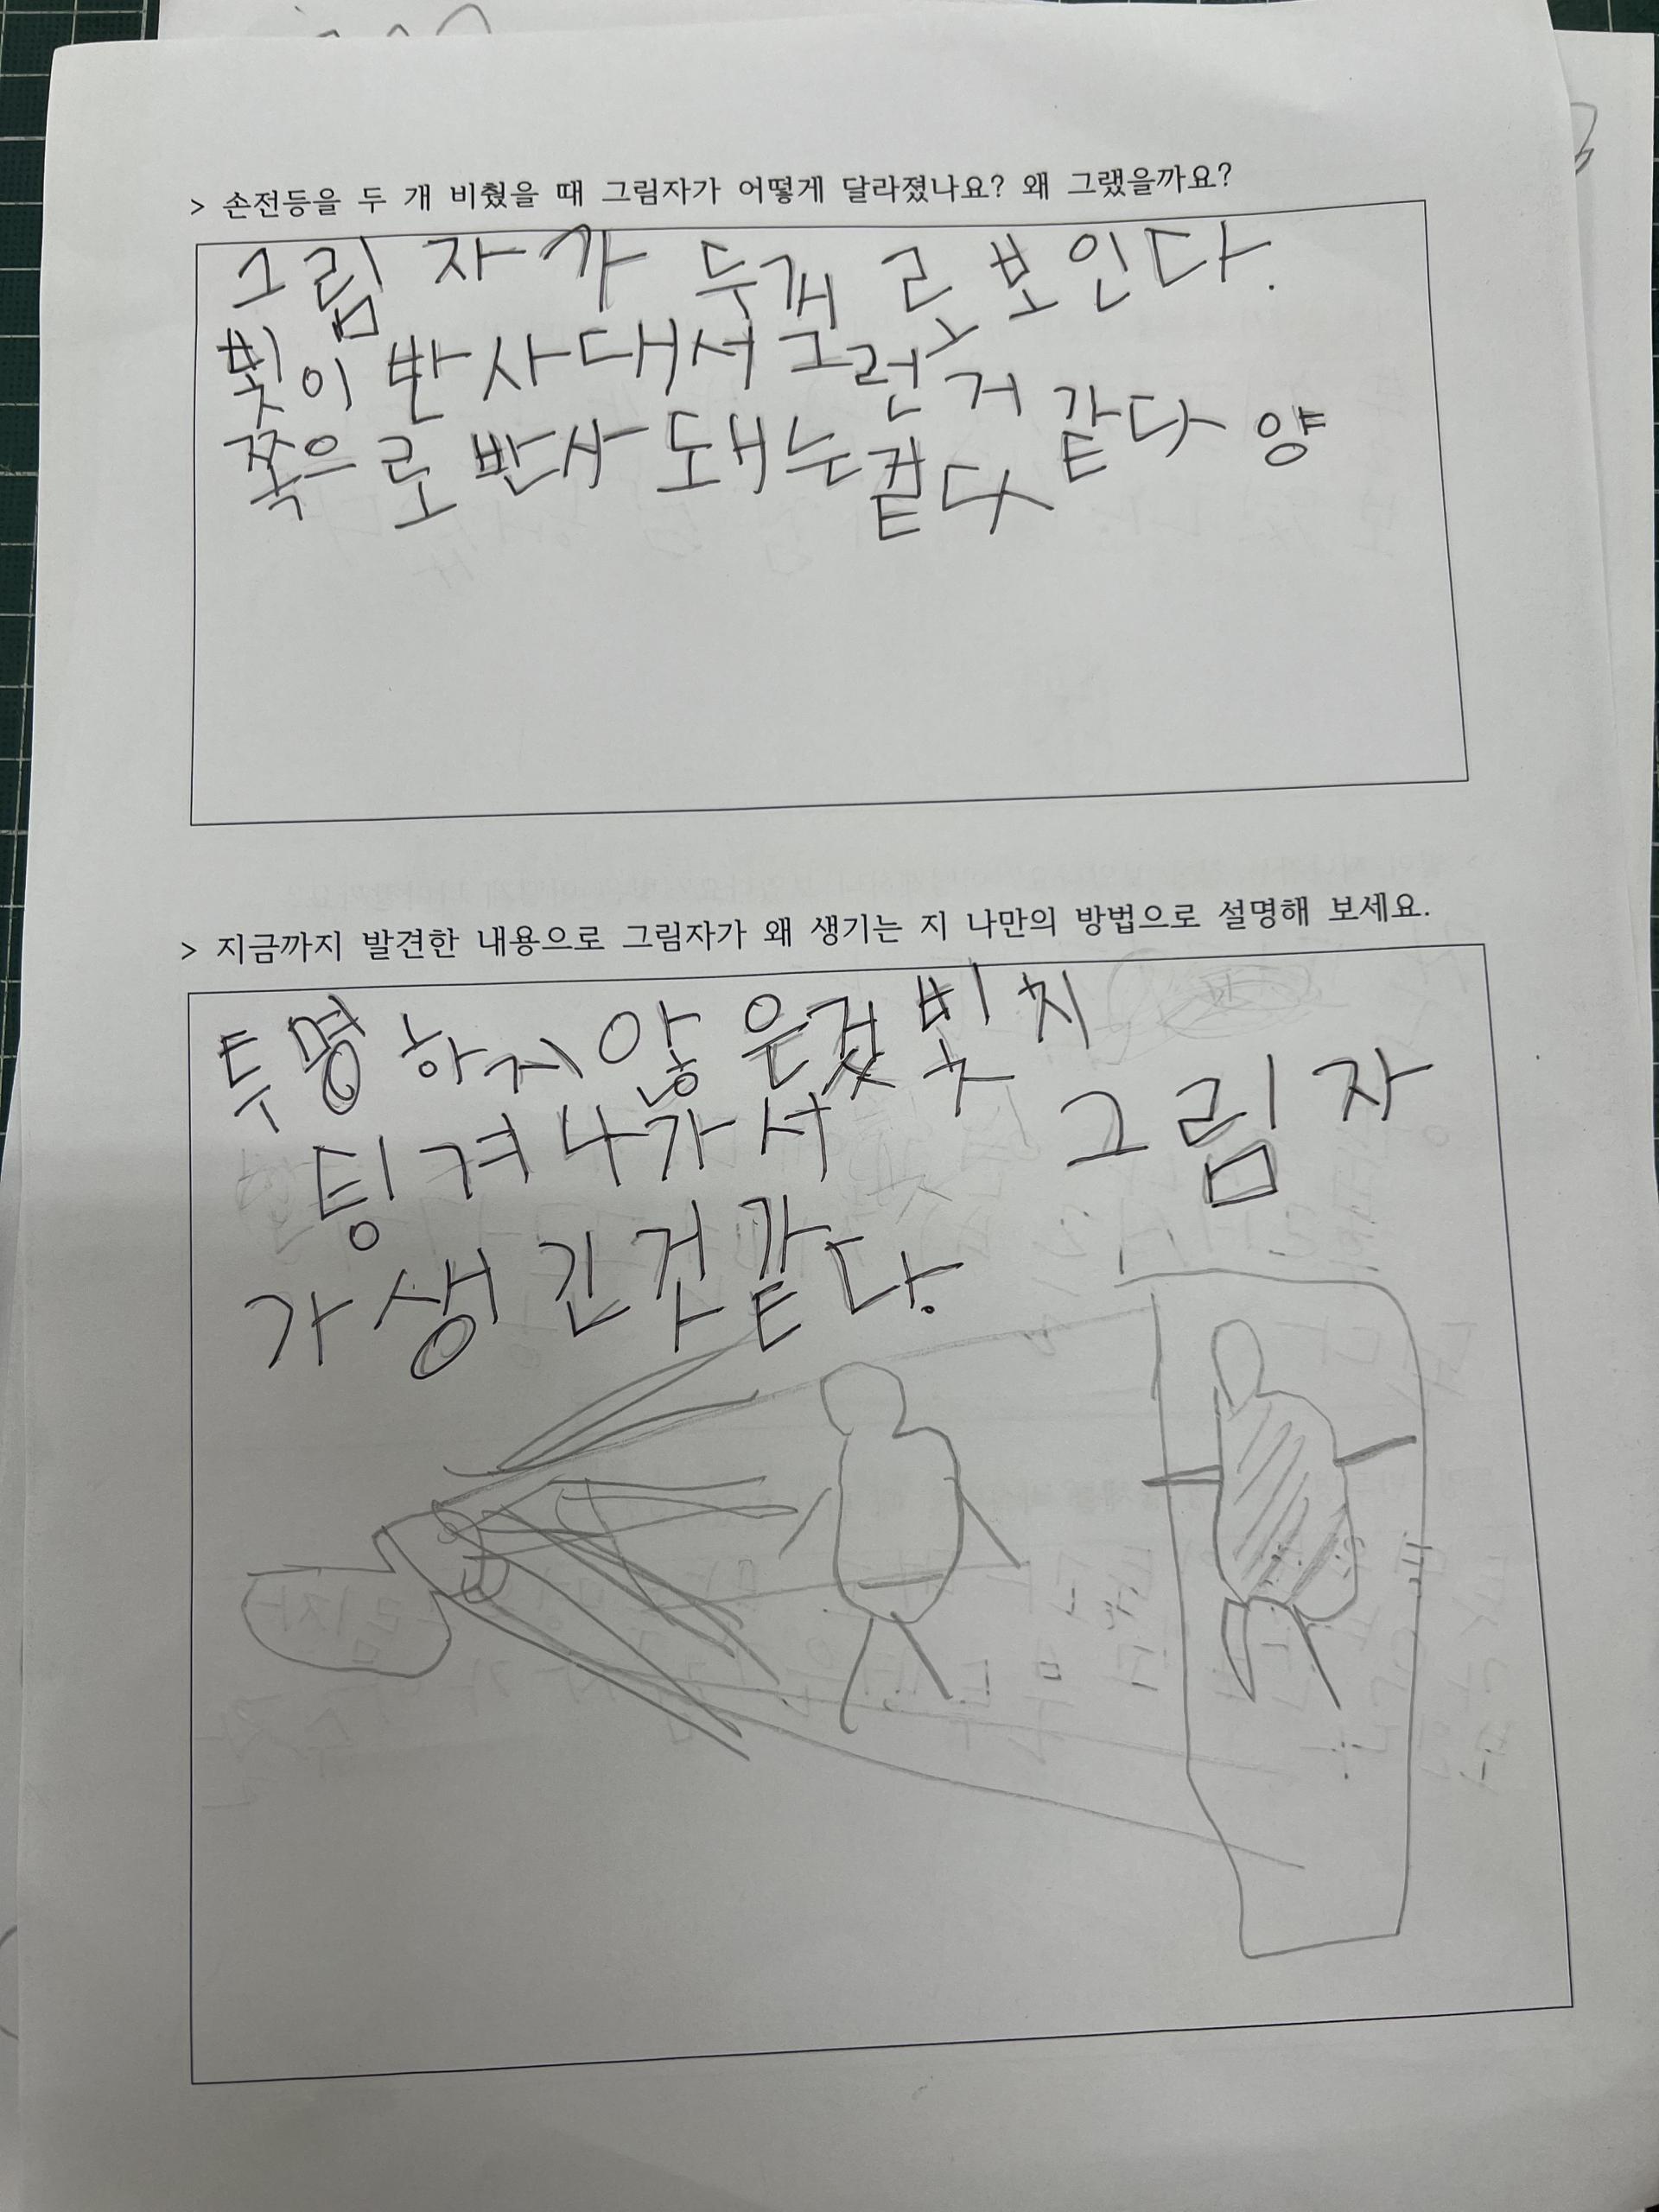 > 손전등을 두 개 비췄을 때 그림자가 어떻게 달라졌나요? 왜 그랬을까요?
그림자가 두개로 보인다.
빛이 반사대서 그런거 같다 양
쪽으로 반사 돼는겉다
> 지금까지 발견한 내용으로 그림자가 왜 생기는 지 나만의 방법으로 설명해 보세요.
투명하지않은것 빛치
팅겨나가서 그림자
가생긴것같다.